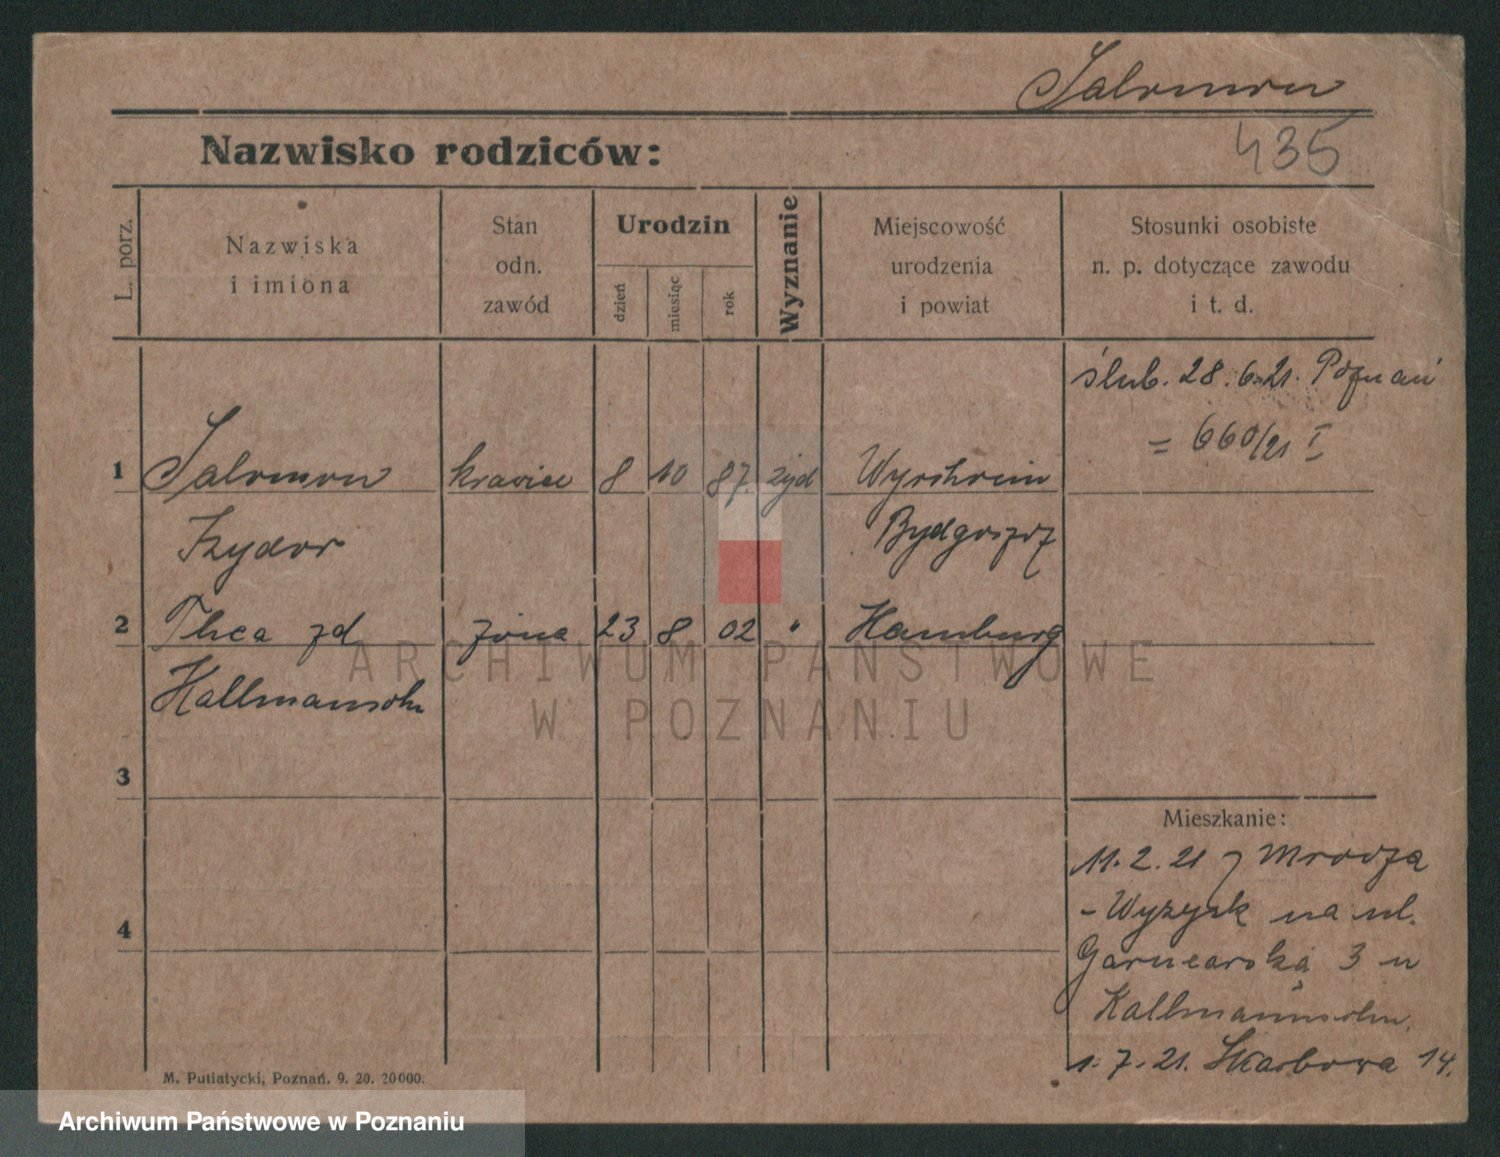 Salomon
Nazwisko rodziców:
435
L. porz.
Nazwiska
i imiona
Stan
odn.
zawód
Urodzin
dzień
miesiąc
rok
Wyznanie
Miejscowość
urodzenia
i powiat
Stosunki osobiste
n. p. dotyczące zawodu
i t. d.
ślub. 28.6.21. Poznań
= 660/21 I
1 Salomon krawiec 8 10 87. żyd
Izydor Bydgoszcz
2 zd żona 23 8 02 " Hamburg
3
Mieszkanie:
11.2.21 z Mrocza
- Wyrzysk na ul.
4
Garncarska 3 u
1.7.21. Skarbowa 14.
M. Putiatycki, Poznań. 9. 20. 20000.
ARCHIWUM PAŃSTWOWE
W POZNANIU
Archiwum Państwowe w Poznaniu